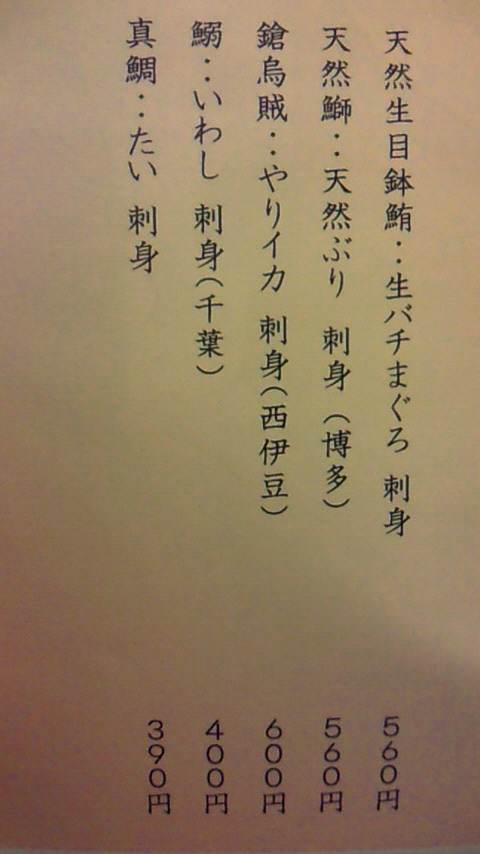 天然生目鉢鮪‥生バチまぐろ 刺身 560円
天然鰤‥天然ぶり 刺身(博多) 560円
鎗烏賊‥やりイカ 刺身(西伊豆) 600円
鰯‥いわし 刺身(千葉) 400円
真鯛‥たい 刺身 390円